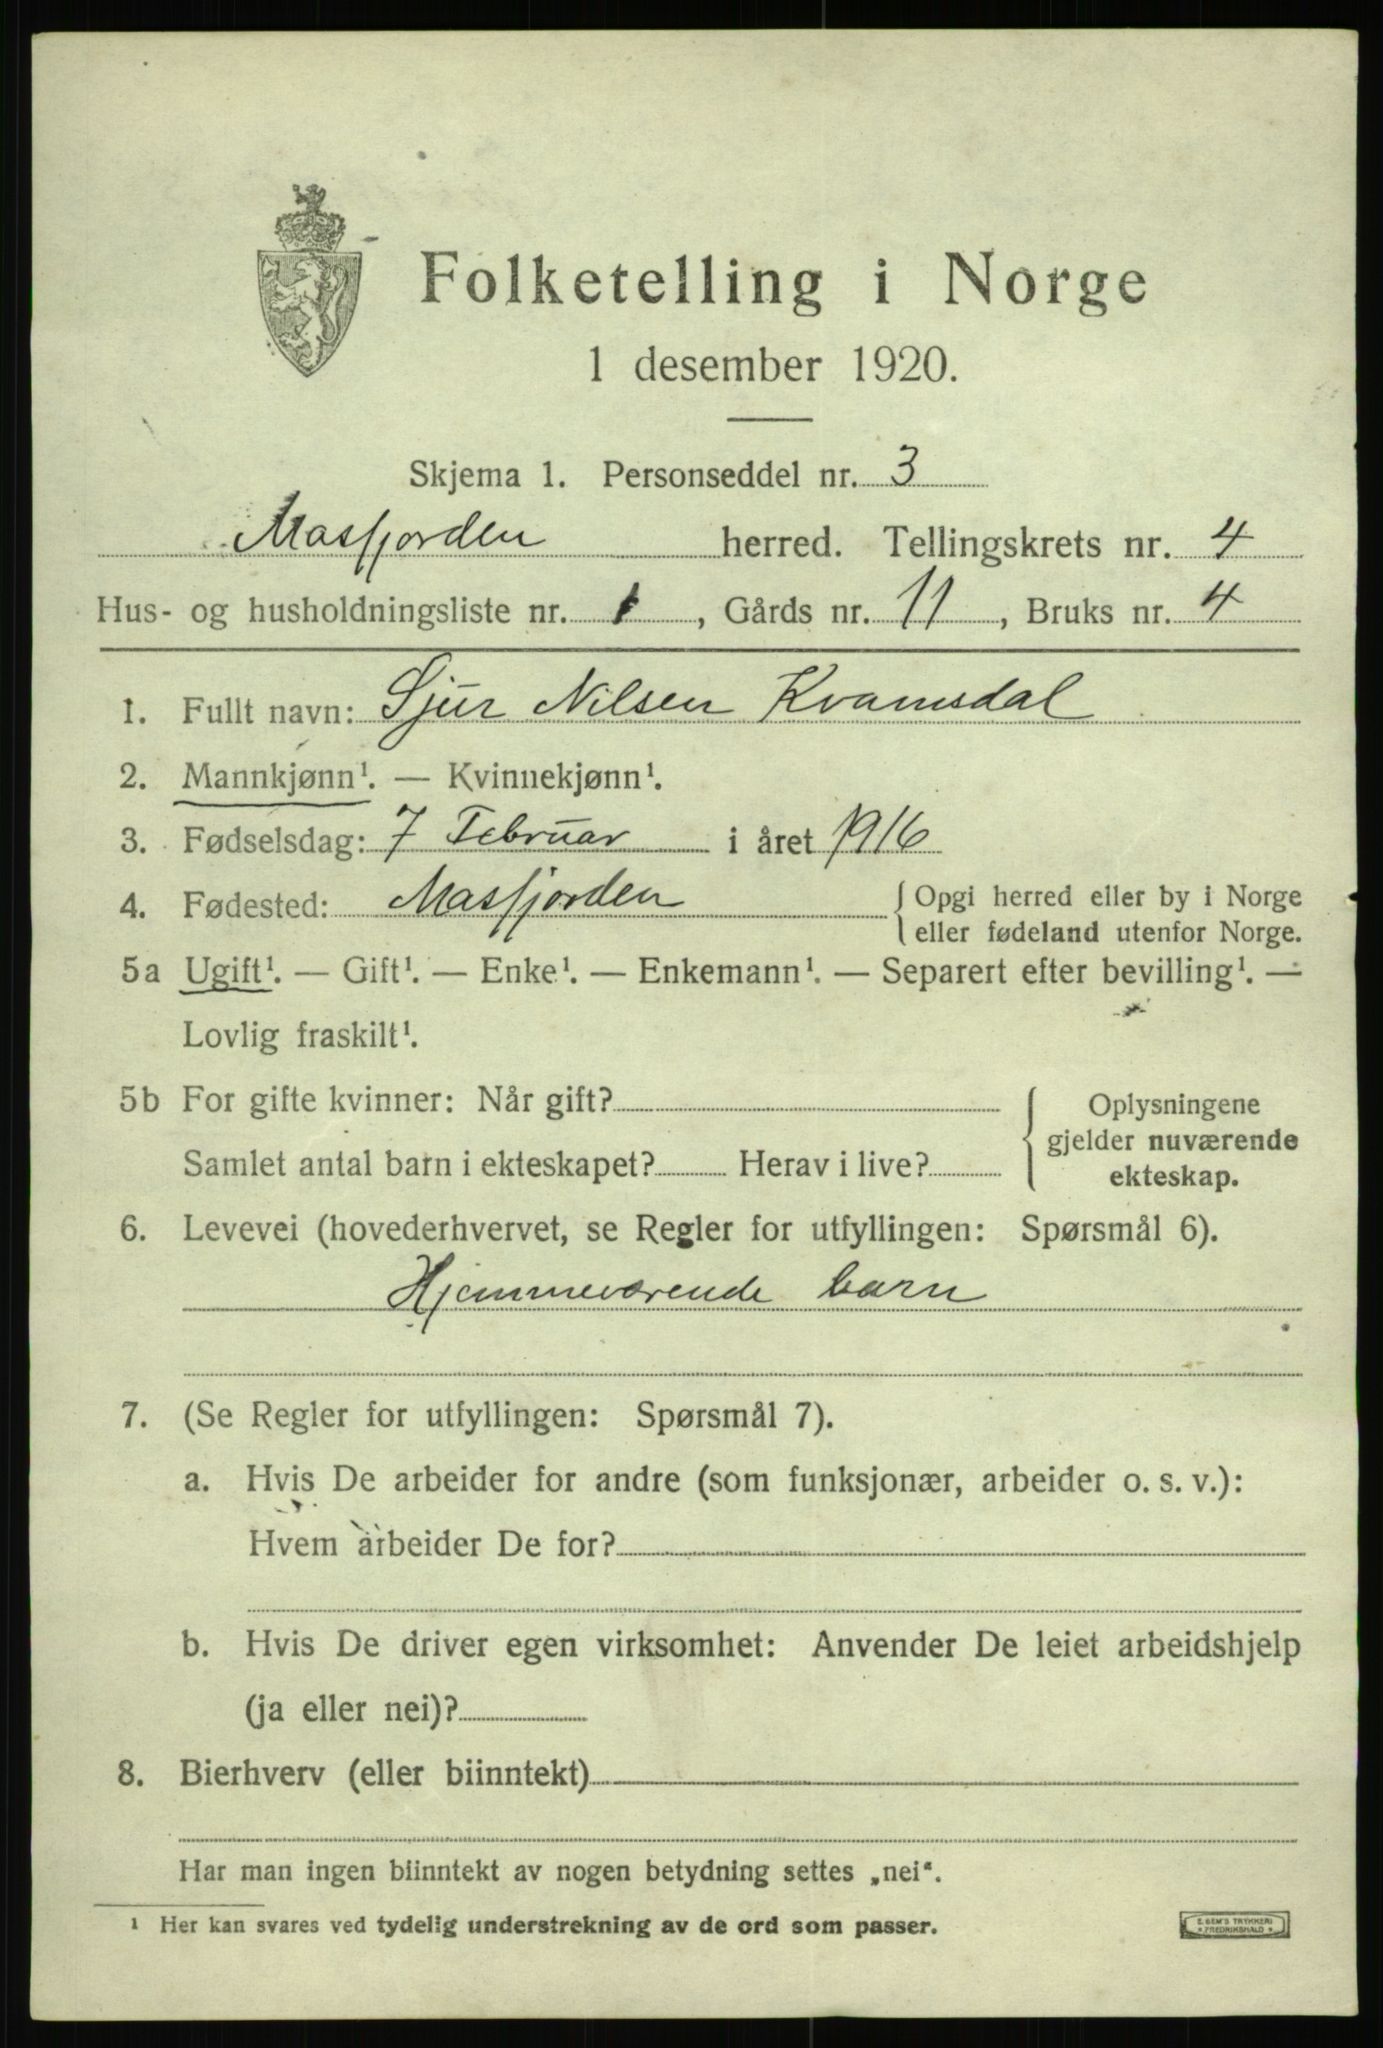 Folketelling i Norge
1 desember 1920.
Skjema 1. Personseddel nr. 3
Masfjorden herred. Tellingskrets nr. 4
Hus- og husholdningsliste nr. 1, Gårds nr. 11, Bruks nr. 4
1. Fullt navn: Sjur Nilsen Kvamsdal
2. Mannkjønn¹. — Kvinnekjønn¹.
3. Fødselsdag: 7 Februar i året 1916
4. Fødested: Masfjorden { Opgi herred eller by i Norge
eller fødeland utenfor Norge.
5a Ugift¹. — Gift¹. — Enke¹. — Enkemann¹. — Separert efter bevilling¹. —
Lovlig fraskilt¹.
5b For gifte kvinner: Når gift? { Oplysningene
gjelder nuværende
Samlet antal barn i ekteskapet? Herav i live? ekteskap.
6. Levevei (hovederhvervet, se Regler for utfyllingen: Spørsmål 6).
Hjemmeværende barn
7. (Se Regler for utfyllingen: Spørsmål 7).
a. Hvis De arbeider for andre (som funksjonær, arbeider o. s. v.):
Hvem arbeider De for?
b. Hvis De driver egen virksomhet: Anvender De leiet arbeidshjelp
(ja eller nei)?
8. Bierhverv (eller biinntekt)
Har man ingen biinntekt av nogen betydning settes „nei“.
¹ Her kan svares ved tydelig understrekning av de ord som passer.
E. SEM'S TRYKKERI
* FREDRIKSHALD *